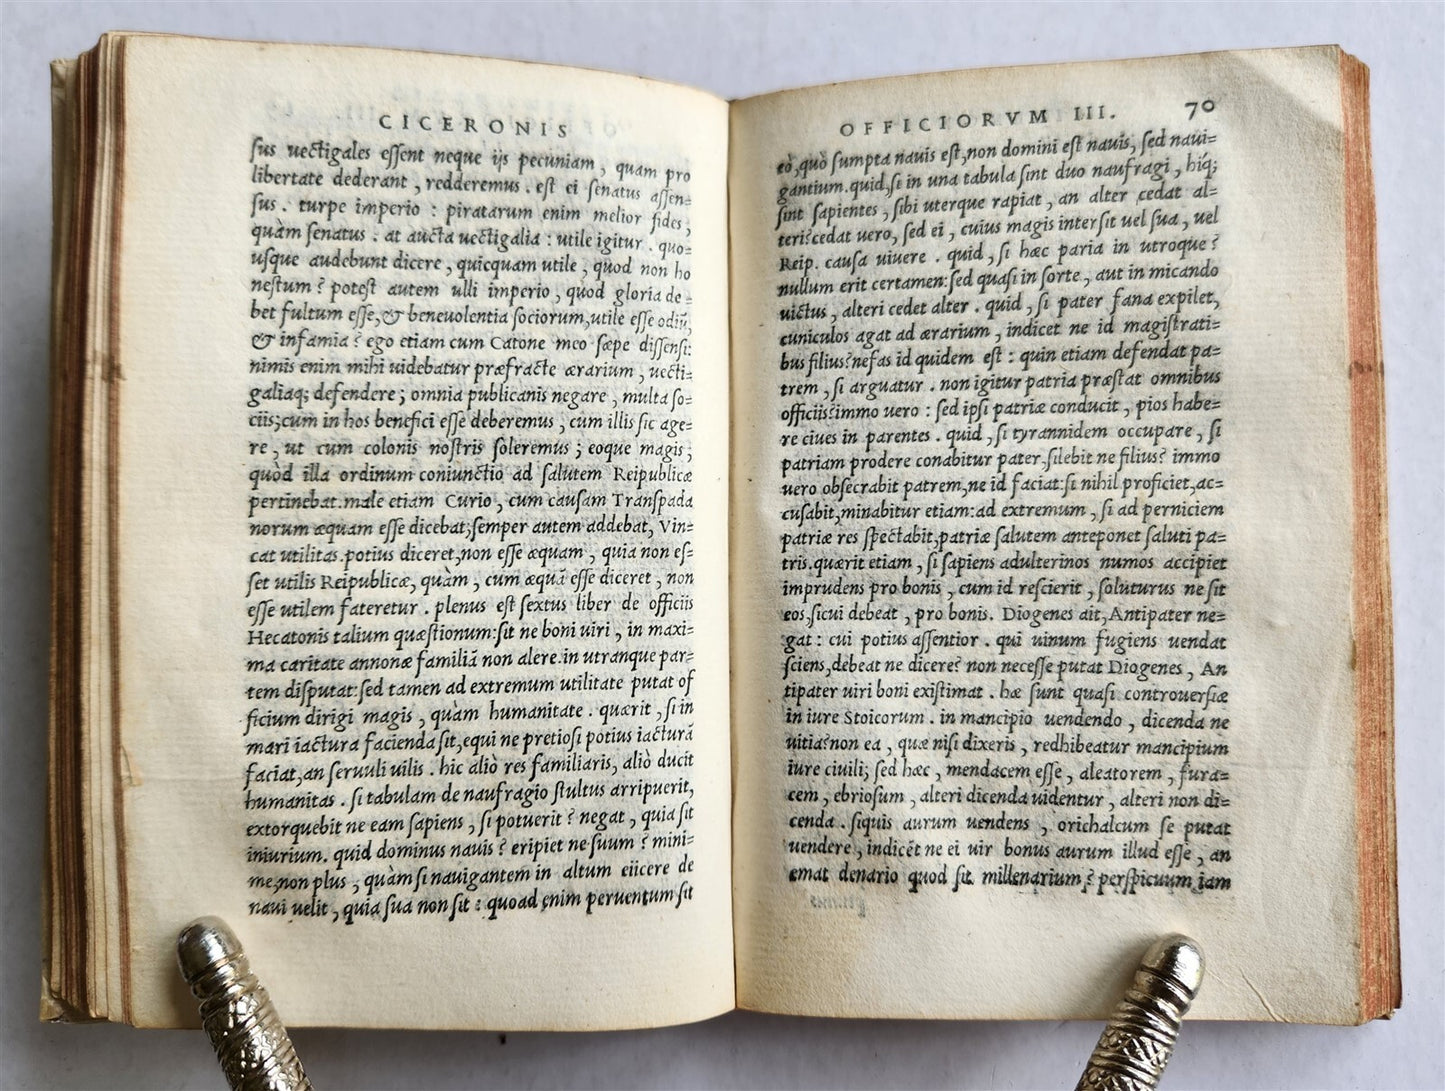 CICERONIS
sus uectigales essent neque ijs pecuniam, quam pro
libertate dederant, redderemus. est ei senatus assen=
sus. turpe imperio: piratarum enim melior fides,
quàm senatus. at aucta uectigalia: utile igitur. quo=
usque audebunt dicere, quicquam utile, quod non ho
nestum? potest autem ulli imperio, quod gloria de=
bet fultum esse, & beneuolentia sociorum, utile esse odiũ,
& infamia? ego etiam cum Catone meo sæpe dissensi:
nimis enim mihi uidebatur præfracte ærarium, uecti=
galiaq; defendere; omnia publicanis negare, multa so=
ciis; cum in hos benefici esse deberemus, cum illis sic age=
re, ut cum colonis nostris soleremus; eoque magis,
quòd illa ordinum coniunctio ad salutem Reipublicæ
pertinebat. male etiam Curio, cum causam Transpada
norum æquam esse dicebat; semper autem addebat, Vin=
cat utilitas. potius diceret, non esse æquam, quia non es=
set utilis Reipublicæ, quàm, cum æquã esse diceret, non
esse utilem fateretur. plenus est sextus liber de officiis
Hecatonis talium quæstionum: sit ne boni uiri, in maxi=
ma caritate annonæ familiã non alere. in utranque par=
tem disputat: sed tamen ad extremum utilitate putat of
ficium dirigi magis, quàm humanitate. quærit, si in
mari iactura facienda sit, equi ne pretiosi potius iacturã
faciat, an seruuli uilis. hic aliò res familiaris, aliò ducit
humanitas. si tabulam de naufragio stultus arripuerit,
extorquebit ne eam sapiens, si potuerit? negat, quia sit
iniurium. quid dominus nauis? eripiet ne suum? mini=
me, non plus, quàm si nauigantem in altum eiicere de
naui uelit, quia sua non sit: quoad enim peruentum sit
OFFICIORVM III. 70
eò, quò sumpta nauis est, non domini est nauis, sed naui=
gantium. quid, si in una tabula sint duo naufragi, hiq;
sint sapientes, sibi uterque rapiat, an alter cedat al=
teri? cedat uero, sed ei, cuius magis intersit uel sua, uel
Reip. causa uiuere. quid, si hæc paria in utroque?
nullum erit certamen: sed quasi in sorte, aut in micando
uictus, alteri cedet alter. quid, si pater fana expilet,
cuniculos agat ad ærarium, indicet ne id magistrati=
bus filius? nefas id quidem est: quin etiam defendat pa=
trem, si arguatur. non igitur patria præstat omnibus
officiis? immo uero: sed ipsi patriæ conducit, pios habe=
re ciues in parentes. quid, si tyrannidem occupare, si
patriam prodere conabitur pater, silebit ne filius? immo
uero obsecrabit patrem, ne id faciat: si nihil proficiet, ac=
cusabit, minabitur etiam: ad extremum, si ad perniciem
patriæ res spectabit, patriæ salutem anteponet saluti pa=
tris. quærit etiam, si sapiens adulterinos numos accipiet
imprudens pro bonis, cum id rescierit, soluturus ne sit
eos, sicui debeat, pro bonis. Diogenes ait, Antipater ne=
gat: cui potius assentior. qui uinum fugiens uendat
sciens, debeat ne dicere? non necesse putat Diogenes, An
tipater uiri boni existimat. hæ sunt quasi controuersiæ
in iure Stoicorum. in mancipio uendendo, dicenda ne
uitia? non ea, quæ nisi dixeris, redhibeatur mancipium
iure ciuili; sed hæc, mendacem esse, aleatorem, fura=
cem, ebriosum, alteri dicenda uidentur, alteri non di=
cenda. siquis aurum uendens, orichalcum se putat
uendere, indicét ne ei uir bonus aurum illud esse, an
emat denario quod sit millenarium? perspicuum iam